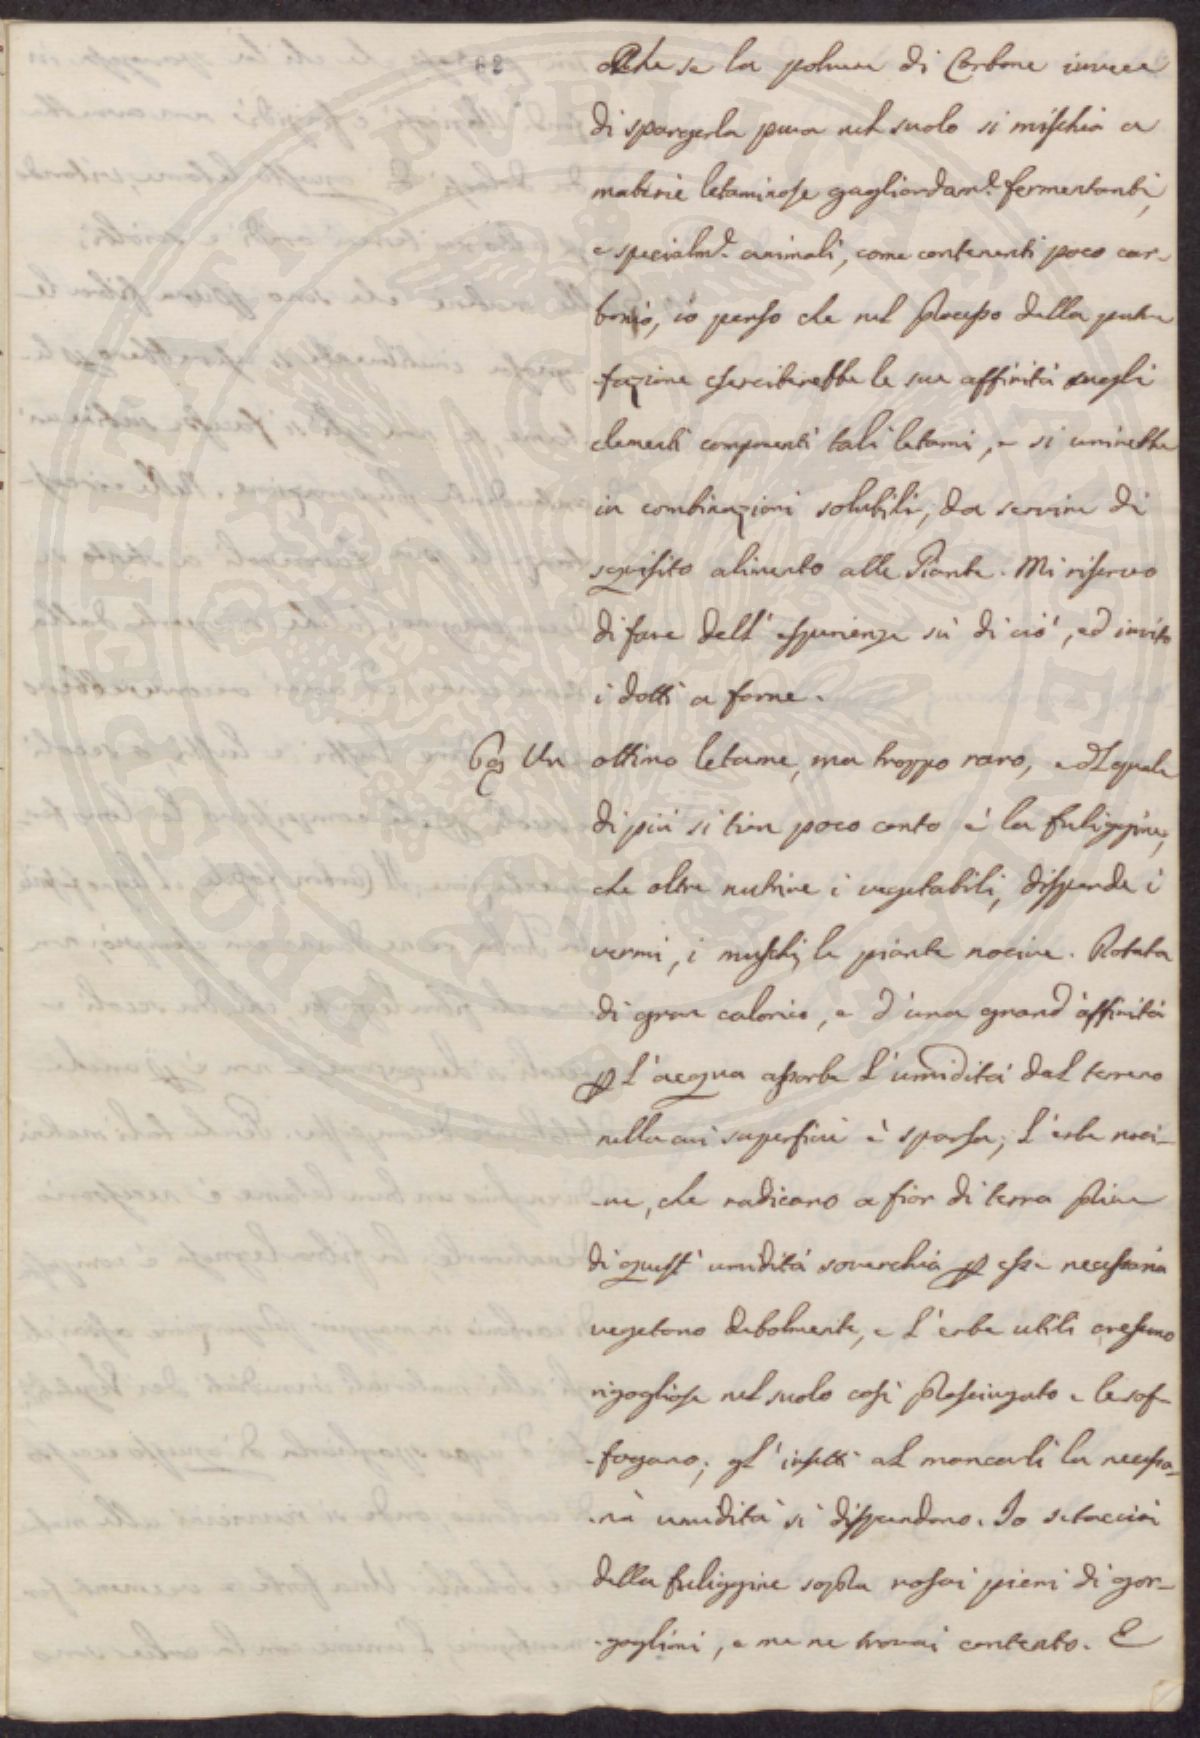 62
Che se la polvere di Carbone invece
di spargerla pura nel suolo si mischia a
materie letaminose gagliardam.e fermentanti,
e specialm.e animali, come contenenti poco car-
bonio, io penso che nel processo della putre
-fazione eserciterebbe le sue affinità sugli
elementi componenti tali letami, e si unirebbe
in combinazioni solubili, da servire di
squisito alimento alle Piante. Mi riservo
di fare dell' esperienze sù di ciò, ed invito
i dotti a farne.
69 Un ottimo letame, ma troppo raro, e del quale
di più si tien poco conto è la fuliggine,
che oltre nutrire i vegetabili, disperde i
vermi, i muschi, le piante nocive. Dotata
di gran calorico, e d'una grand'affinità
p l'acqua assorbe l'umidità dal terreno
nella cui superficie è sparsa; l'erbe noci-
-ve, che radicano a fior di terra prive
di quest' umidità soverchia p esse necessaria
vegetano debolmente, e l'erbe utili crescono
rigogliose nel suolo così prosciugato e le sof-
-fogano; gl' insetti al mancarli la necessa-
-ria umidità si disperdono. Io setacciai
della fuliggine sopra rosai pieni di gor-
-goglioni, e me ne trovai contento. E